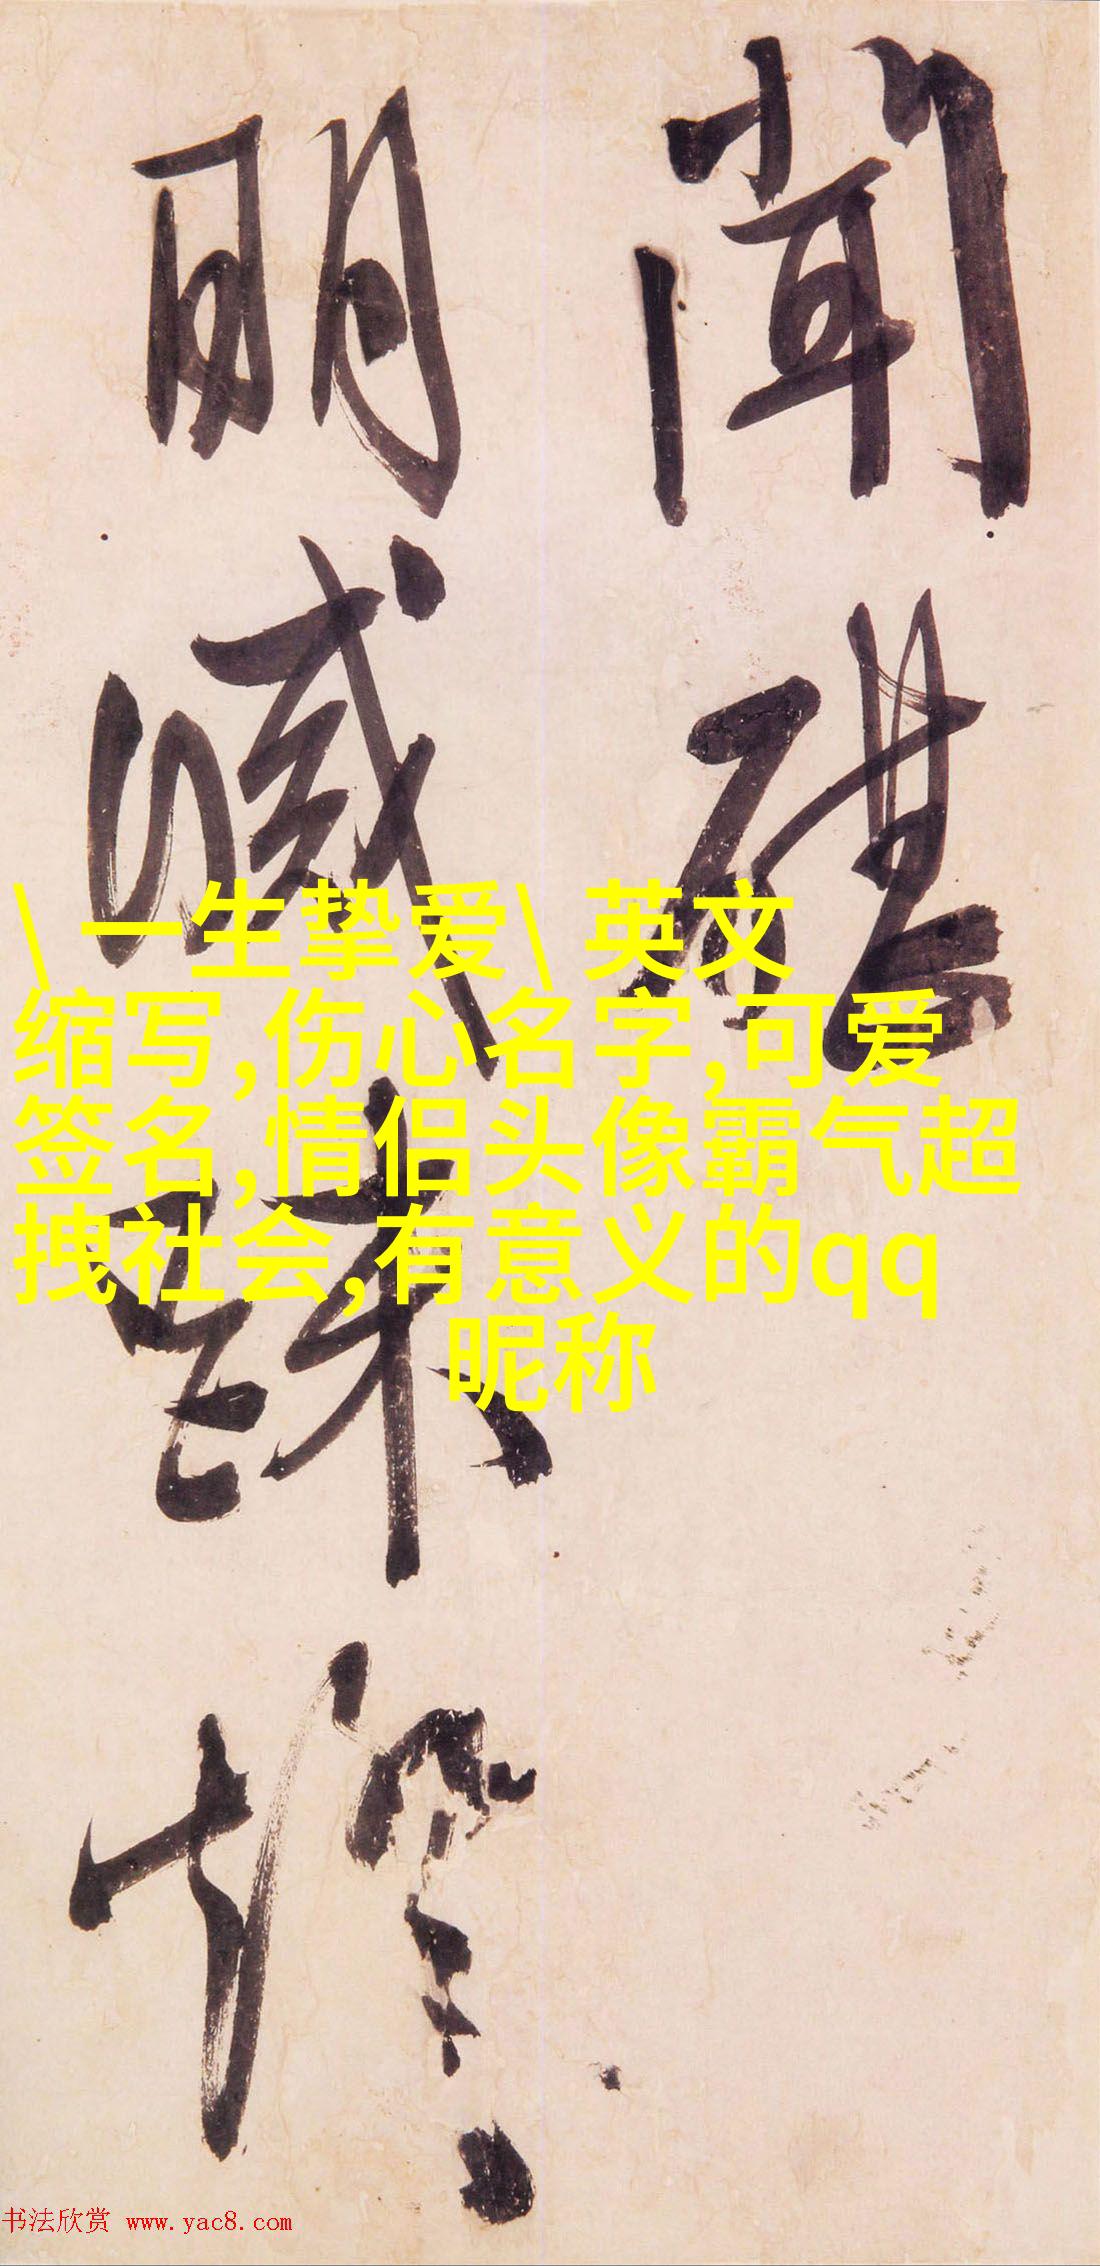 聞
\ 一生挚爱\ 英文
缩写,伤心名字,可爱
签名,情侣头像霸气超
拽社会,有意义的qq
昵称
书法欣赏 www.yac8.com